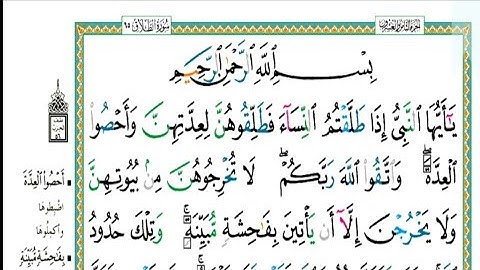 سُورَةُ الطَّلَاقِ ٦٥
الجزء الثامن والعشرون
بِسْمِ اللَّهِ الرَّحْمَٰنِ الرَّحِيمِ
يَٰٓأَيُّهَا النَّبِيُّ إِذَا طَلَّقْتُمُ النِّسَآءَ فَطَلِّقُوهُنَّ لِعِدَّتِهِنَّ وَأَحْصُوا۟
الْعِدَّةَ ۖ وَاتَّقُوا۟ اللَّهَ رَبَّكُمْ ۖ لَا تُخْرِجُوهُنَّ مِنۢ بُيُوتِهِنَّ
وَلَا يَخْرُجْنَ إِلَّآ أَن يَأْتِينَ بِفَٰحِشَةٍ مُّبَيِّنَةٍ ۚ وَتِلْكَ حُدُودُ
أَحْصُوا الْعِدَّةَ
اضبِطوها
وأكمِلُوها
بِفَاحِشَةٍ مُبَيِّنَةٍ